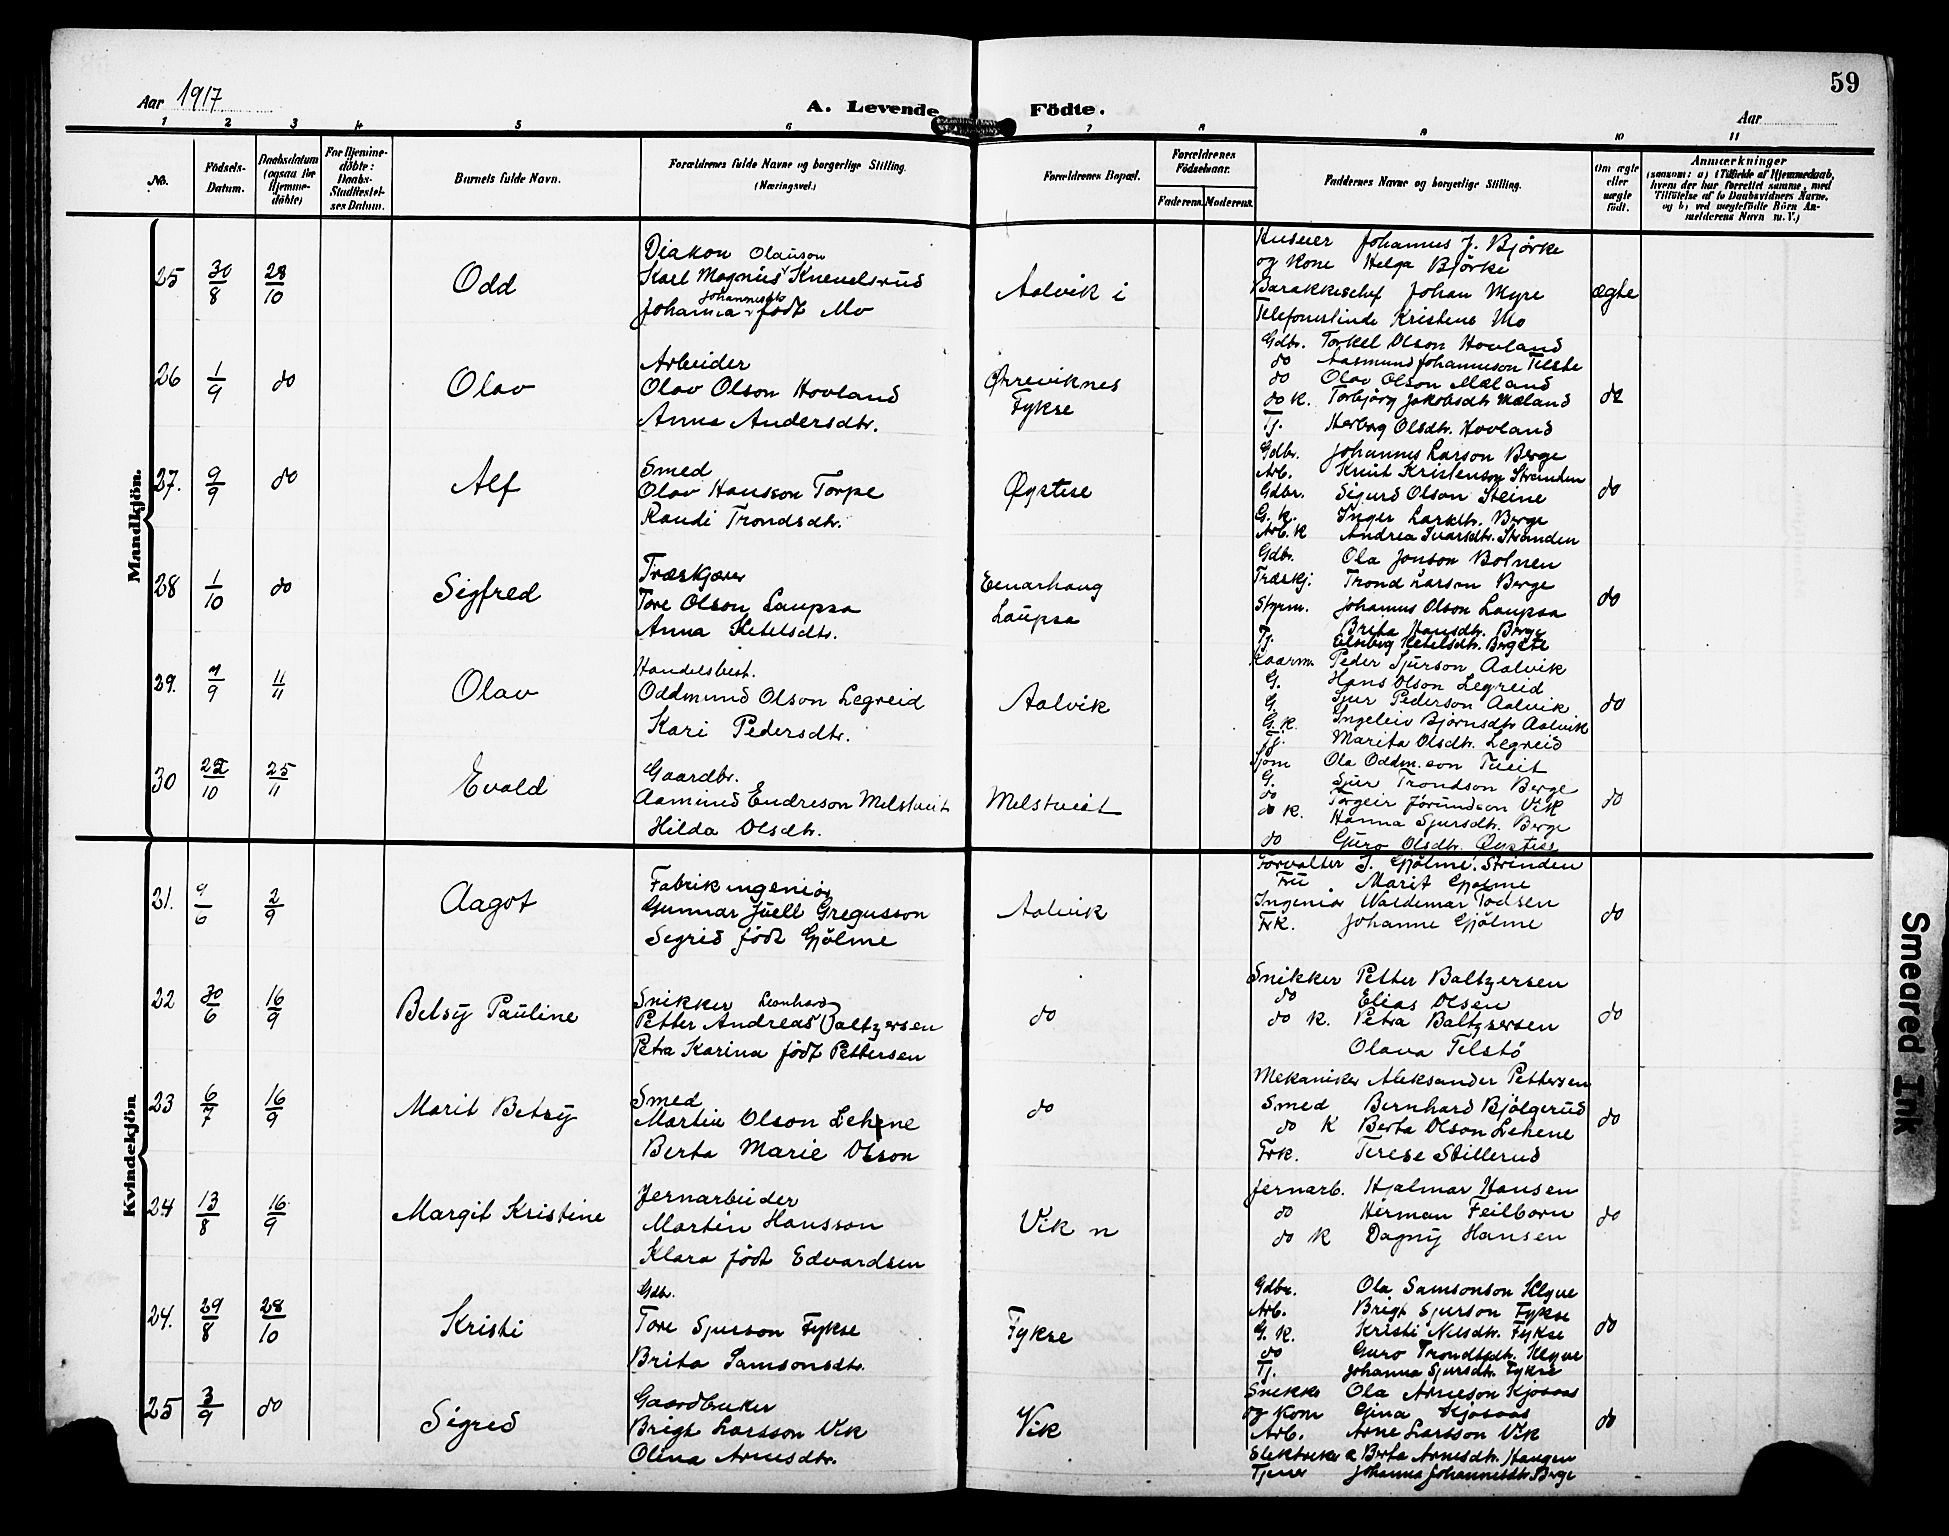 59
Aar 1917
A. Levende Födte.
Aar
1 2 3 4 5 6 7 8 9 10 11
No.
Födsels-Datum.
Daabsdatum (ogsaa for Hjemme-döbte)
For Hjemme-döbte: Daabs-Stadfæstel-ses Datum.
Barnets fulde Navn.
Forældrenes fulde Navne og borgerlige Stilling. (Næringsvei.)
Forældrenes Bopæl.
Forældrenes Födselsaar.
Faderens. Moderens.
Faddernes Navne og borgerlige Stilling.
Om ægte eller uægte födt.
Anmærkninger
(saasom: a) i Tilfælde af Hjemmedaab, hvem der har forrettet samme, med Tilföielse af to Daabsvidners Navne, og b) ved uægtefödte Börn An-melderens Navn m. V.)
Mandkjön.
25 30/8 28/10 Odd
Diakon Olauson
Karl Magnus Knevelsrud
Johannesdtr
Johanna født Mo
Aalvik i
Huseier Johannes J. Björke
og Kone Helga Björke
Barakkeschef Johan Myre
Telefonistinde Kristene Mo
ægte
26 1/9 do Olav
Arbeider
Olav Olson Hovland
Anna Andersdtr.
Ørreviknes
Fykse
Gdbr. Torkel Olson Hovland
do Aasmund Johannesson Telste
do Olav Olson Mæland
do k. Torbjörg Jakobsdtr. Mæland
Tj. Herborg Olsdtr. Hovland
do
27. 9/9 do Alf
Smed
Olav Hansson Torpe
Randi Trondsdtr.
Øystese
Gdbr. Johannes Larson Berge
Arb. Knut Kristenson Stranden
Gdbr. Sigurd Olson Steine
G. k. Inger Larsdtr. Berge
Arb. K Andrea Ivarsdtr. Stranden
do
28 1/10 do Sigfred
Træskjærer
Tore Olson Laupsa
Anna Ketelsdtr.
Einarhaug
Laupsa
Gdbr. Ola Jonson Bolnen
Træskj. Trond Larson Berge
Styrm. Johannes Olson Laupsa
Brita Hansdtr. Berge
Tj. Elseberg Ketelsdtr. Bergete
do
29. 7/9 11/11 Olav
Handelsbest.
Oddmund Olson Legreid
Kari Pedersdtr.
Aalvik
Kaarm. Peder Sjurson Aalvik
G. Hans Olson Legreid
G. Sjur Pederson Aalvik
G. K. Ingeleiv Bjørnsdtr. Aalvik
Tj. Marita Olsdtr. Legreid
do
30 22/10 25/11 Evald
Gaardbr.
Aamund Endreson Melstveit
Hilda Olsdtr.
Melstveit
Sjøm Ola Oddm.son Tveit
G. Sjur Trondson Berge
do Torgeir Jörundson Vik
do K. Hanna Sjursdtr. Berge
do Guro Olsdtr. Øystese
do
Kvindekjön
21. 9/6 2/9 Aagot
Fabrikingeniør
Gunnar Juell Gregusson
Sigrid født Gjölme
Aalvik
Forvalter J. Gjölme, Strinden
Fru Marit Gjølme
Ingeniør Waldemar Todsen
Frk. Johanne Gjölme
do
22 30/6 16/9 Betsy Pauline
Snikker Leonhard
Petter Andreas Baltzersen
Petra Karina født Pettersen
do
Snikker Petter Baltzersen
do Elias Olsen
do K. Petra Baltzersen
Olava Telstø
do
23 6/7 16/9 Marit Betsy
Smed
Martin Olson Lehene
Berta Marie Olson
do
Mekaniker Aleksander Pettersen
Smed Bernhard Bjölgerud
do K Berta Olson Lehene
Frk. Terese Stillerud
do
24 13/8 16/9 Margit Kristine
Jernarbeider
Martin Hansson
Klara født Edvardsen
Vik n
Jernarb. Hjalmar Hansen
do Herman Feilborn
do K Dagny Hansen
do
24. 29/8 28/10 Kristi
Gdbr.
Tore Sjurson Fykse
Brita Samsonsdtr.
Fykse
Gdbr. Ola Samsonson Klyve
Arb. Brigt Sjurson Fykse
G. K. Kristi Nilsdtr. Fykse
do Guro Trondsdtr. Klyve
Tj. Johanna Sjursdtr. Fykse
do
25 3/9 do Sigred
Gaardbruker
Brigt Larsson Vik
Olina Arnesdtr.
Vik
Snikke Ola Arneson Kjosaas
og Kone Gina Kjosaas
Arb. Arne Larsson Vik
Elektriker k Berta Arnesdtr. Haugen
Tjener Johanna Johannesdtr. Berge
do
Smeared Ink